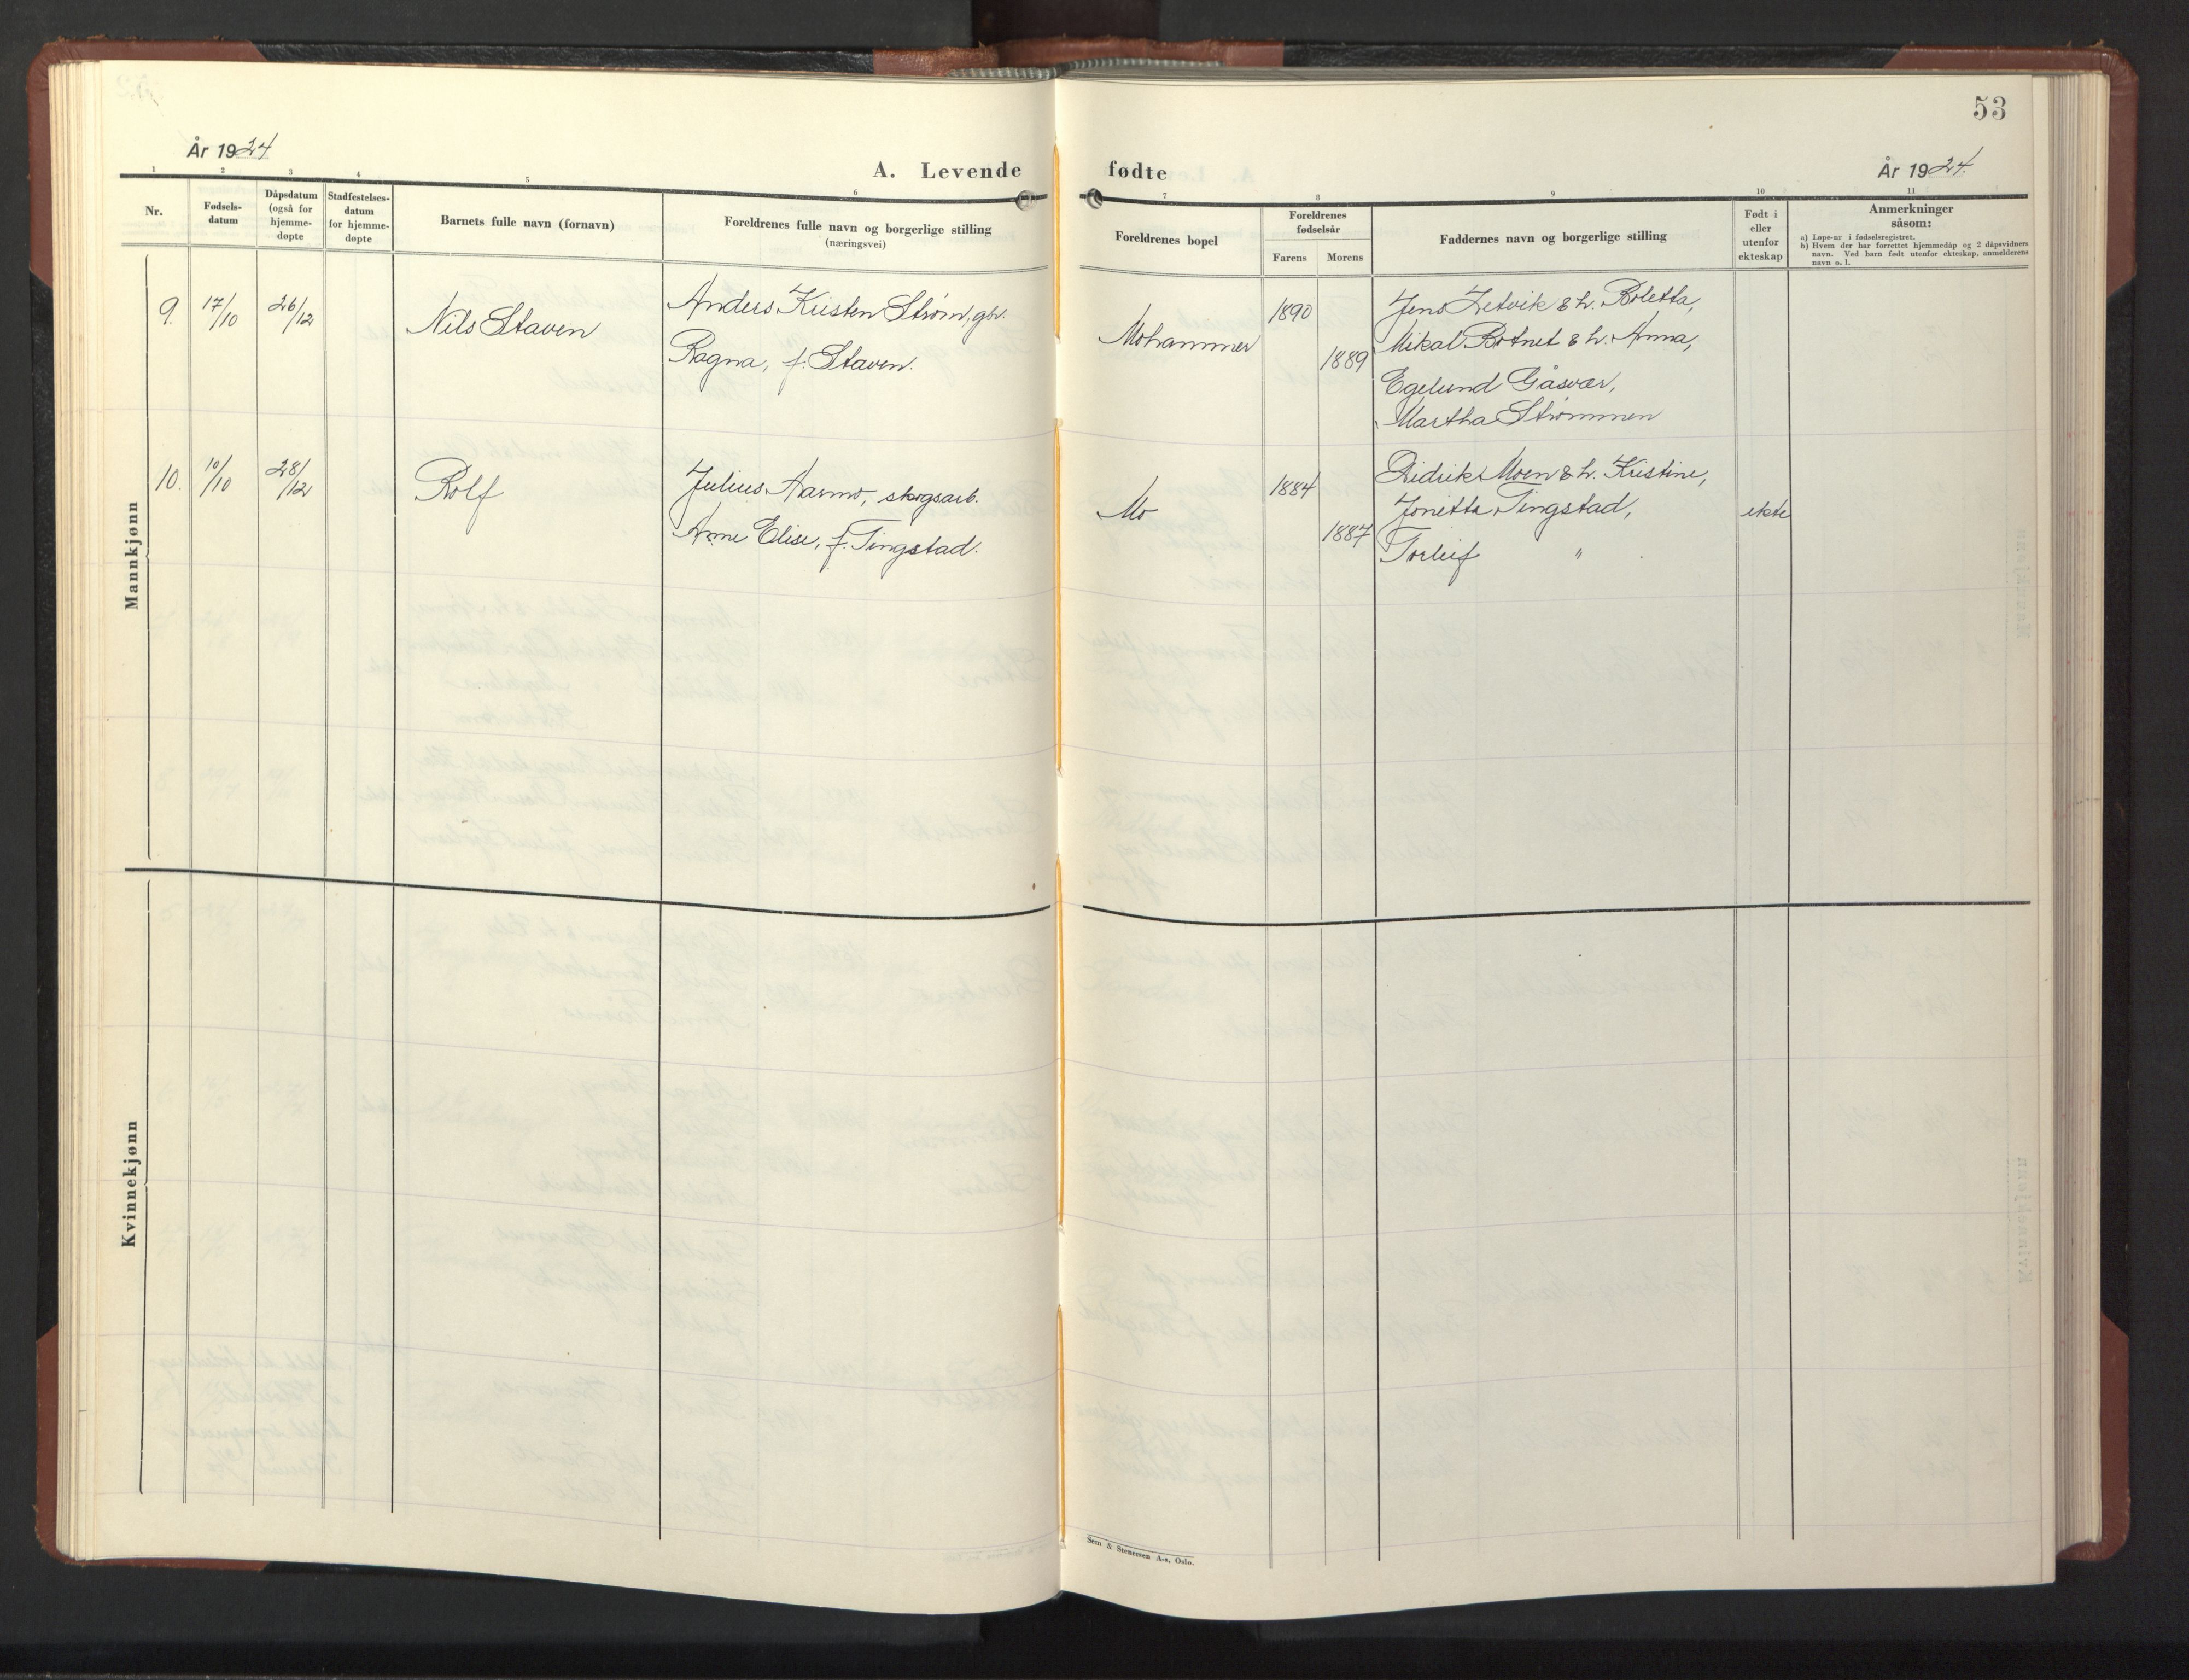 53
År 1924
A. Levende
fødte
År 1924.
1 2 3 4 5 6 7 8 9 10 11
Nr.
Fødsels-
datum
Dåpsdatum
(også for
hjemme-
døpte
Stadfestelses-
datum
for hjemme-
døpte
Barnets fulle navn (fornavn)
Foreldrenes fulle navn og borgerlige stilling
(næringsvei)
Foreldrenes bopel
Foreldrenes
fødselsår
Farens Morens
Faddernes navn og borgerlige stilling
Født i
eller
utenfor
ekteskap
Anmerkninger
såsom:
a) Løpe-nr i fødselsregistret.
b) Hvem der har forrettet hjemmedåp og 2 dåpsvidners
navn. Ved barn født utenfor ekteskap, anmelderens
navn o. l.
Mannkjønn
9. 17/10 26/12 Nils Staven
Anders Kristen Strøm, gbr.
Ragna, f. Staven.
Mohammer
1890
1889
Jens Zetvik & h. Boletta,
Mikal Botnet & h. Anna,
Egelund Gåsvær,
Martha Strømmen
10. 10/10 28/12 Rolf
Julius Aarmo, skogsarb.
Anne Elise, f. Tingstad.
Mo
1884
1887
Didrik Moen & h. Kristine,
Jonetta Tingstad,
Torleif "
ekte
Kvinnekjønn
Sem & Stenersen A-s, Oslo.